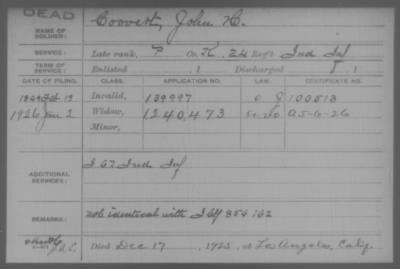 DEAD
NAME OF SOLDIER: Coovert, John H.
SERVICE: Late rank, P Co. K, 24 Reg't Ind Inf
TERM OF SERVICE: Enlisted 1 Discharged 1
DATE OF FILING. CLASS. APPLICATION NO. LAW. CERTIFICATE NO.
1869 Feb 19 Invalid, 139997 100513
1926 Jan 2 Widow, 1240,473 A5-6-26
Minor,
ADDITIONAL SERVICES: I 67 Ind Inf
REMARKS: not identical with I Ctf 854,162
Died Dec 17, 1925, at Los Angeles, Calif.